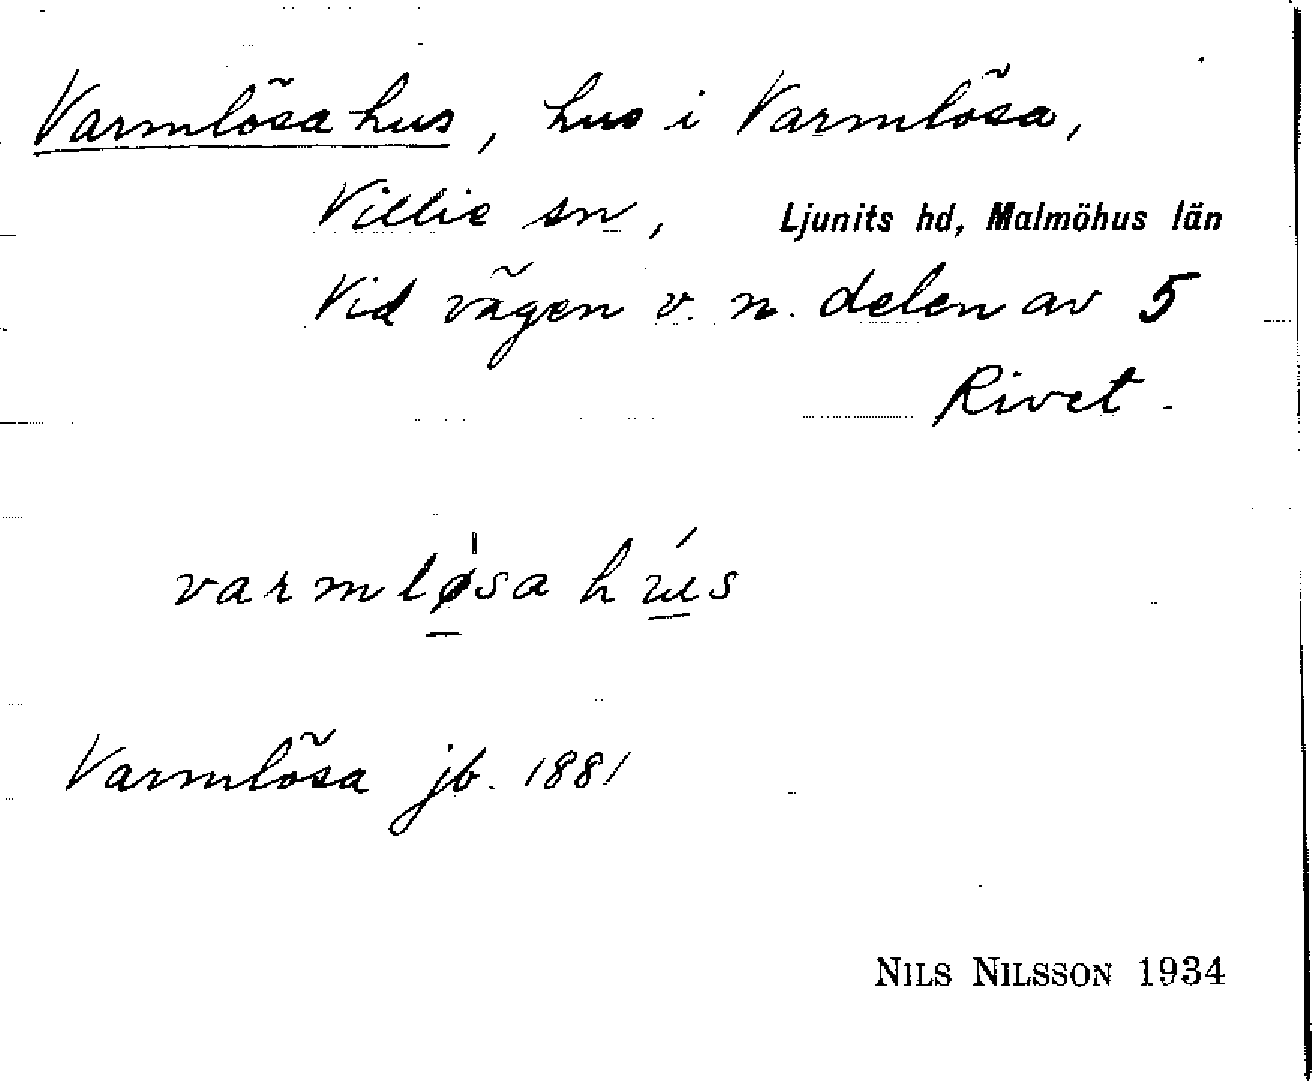 Varmlösahus, hus i Varmlösa,
Villie sn, Ljunits hd, Malmöhus län
Vid vägen v. n. delen av 5
Rivet.
varmløsa hús
Varmlösa jb. 1881
NILS NILSSON 1934